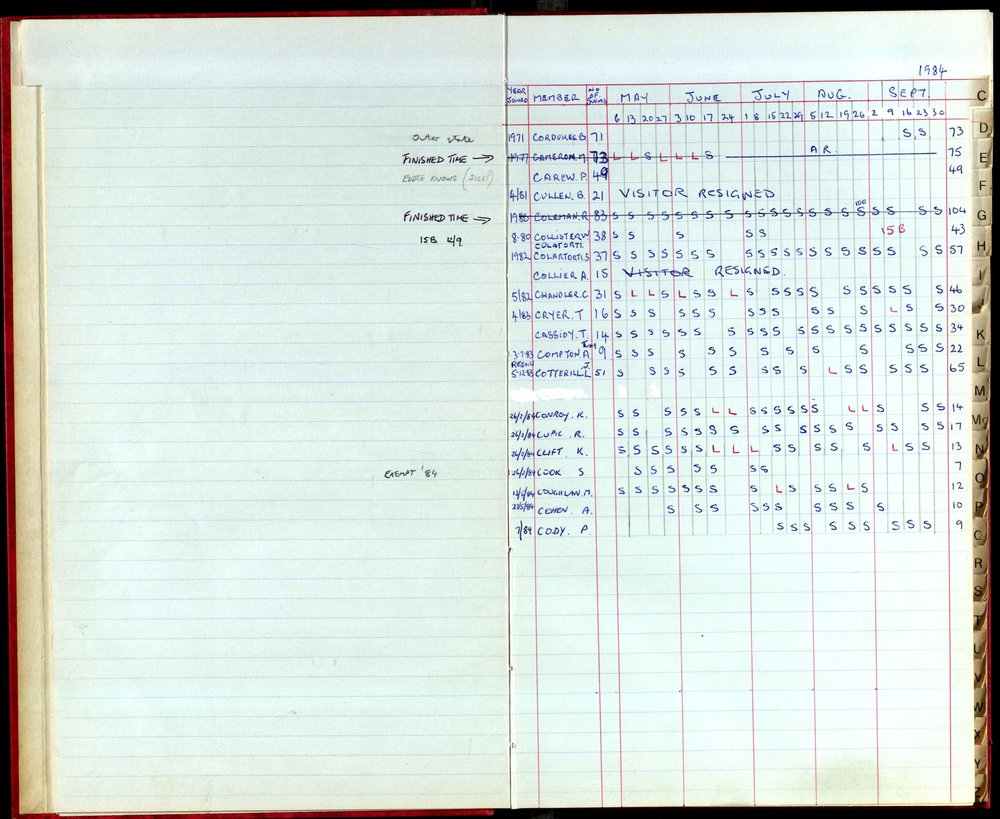 1984
YEAR JOINED MEMBER NO OF SWIMS MAY JUNE JULY AUG. SEPT.
6 13 20 27 3 10 17 24 1 8 15 22 29 5 12 19 26 2 9 16 23 30
Outer state 1971 CORDUKES B. 71 S S 73
FINISHED TIME → 1977 CAMERON. M 73 L L S L L L S A.R. 75
EDDIE KNOWS (SICK) CAREW. P. 49 49
4/81 CULLEN. B. 21 VISITOR RESIGNED
FINISHED TIME → 1980 COLEMAN. R 83 S S S S S S S S S S S S S S S S 100 S S S S S 104
15B 4/9 8-80 COLLISTER W 38 S S S S S 15B 43
COLATORTI.
1982 COLARTORTI S 37 S S S S S S S S S S S S S S S S S S S S 57
COLLIER A. 15 VISITOR RESIGNED.
5/82 CHANDLER. C 31 S L L S L S S L S S S S S S S S S S S 46
4/83 CRYER. T 16 S S S S S S S S S S S S L S S 30
CASSIDY. T. 14 S S S S S S S S S S S S S S S S S S S S 34
3-7-83 COMPTON A. 9 S S S S S S S S S S S S S S 22
RESIGN
5-12-83 COTTERILL. J. 51 S S S S S S S S S L S S S S S 65
26/2/84 CONROY. K. S S S S S L L S S S S S S L L S S S 14
26/2/84 CUPIC. R. S S S S S S S S S S S S S S S S S S 17
26/2/84 CLIFT K. S S S S S S L L L S S S S S L S S 13
EXEMPT '84 26/2/84 COOK S S S S S S S S 7
13/5/84 COUGHLAN. M. S S S S S S S S L S S S L S 12
27/5/84 COHEN. A. S S S S S S S S S S 10
7/84 CODY. P. S S S S S S S S S 9
C
D
E
F
G
H
I
J
K
L
M
Mc
N
O
P
Q
R
S
T
U
V
W
X
Y
Z